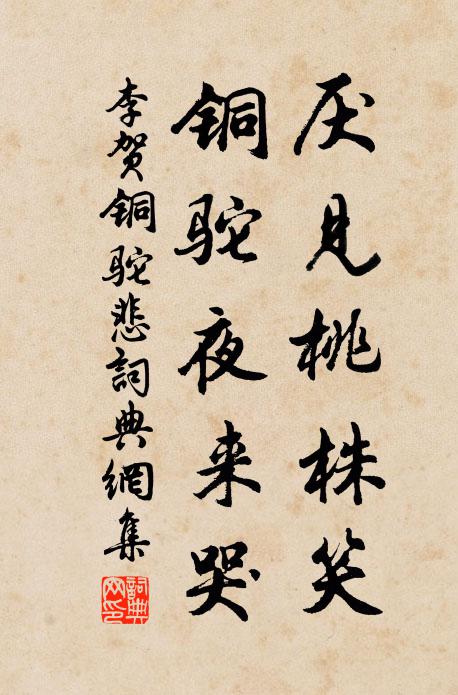 厌见桃株笑
铜驼夜来哭
李贺铜驼悲詞典網集
詞典網印